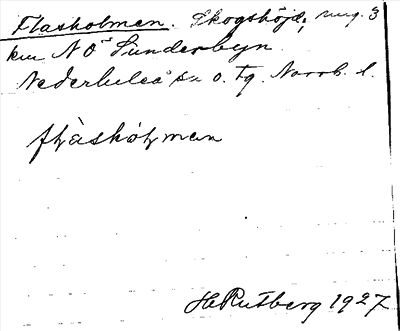 Flasholmen. Skogshöjd, ung. 3
km NO Sunderbyn.
Nederluleå sn o. tg. Norrb. l.
H Rutberg 1927